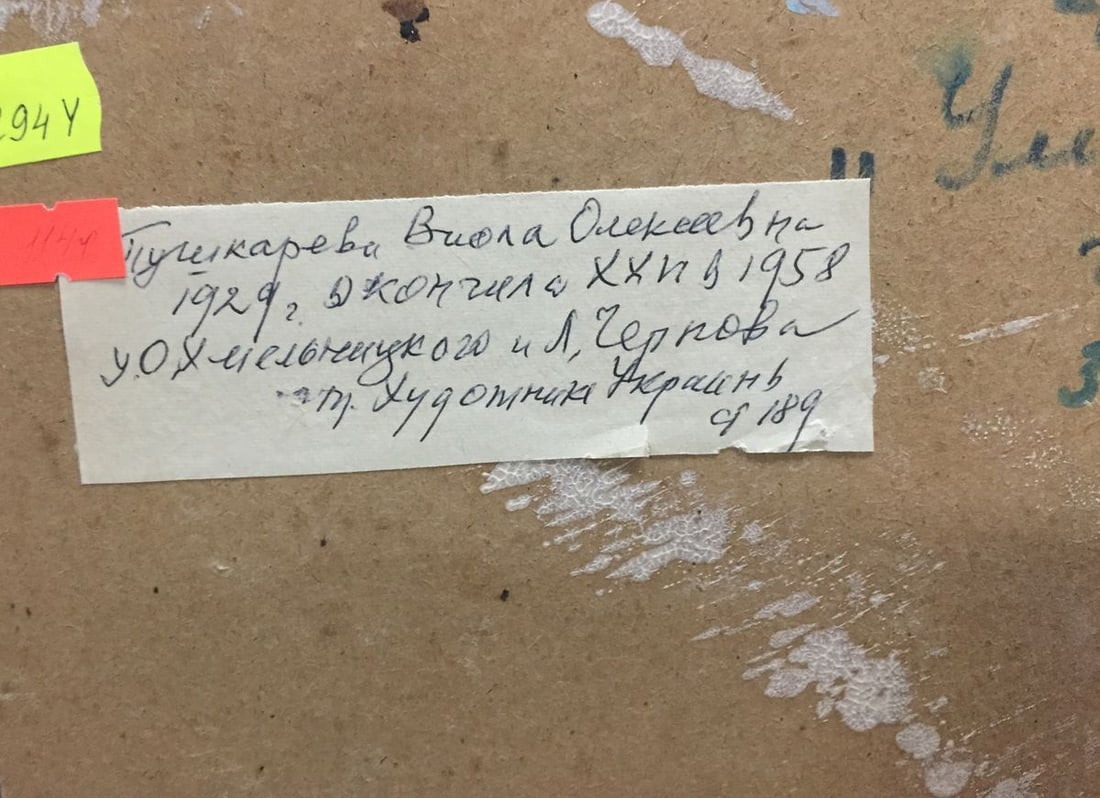 294Y
Пушкарева Виола Олексеевна
1929г. Окончила ХХПВ 1958
у.О Хмельницкого и Л, Чернова
т. Художники Украинь
ст 189